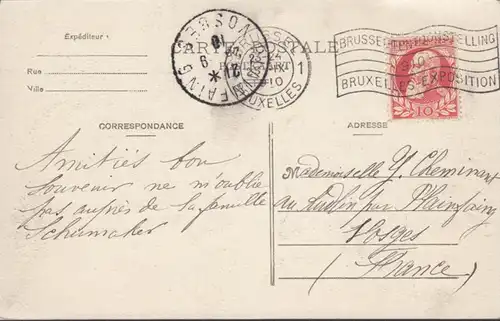 Expéditeur :
CARTE POSTALE
Rue
Ville
BRUSSEL TENTOONSTELLING
BRUXELLES-EXPOSITION
1
BRUXELLES
10
CORRESPONDANCE
ADRESSE
Amitiés bon
souvenir ne m'oublie
pas auprès de la famille
Schumaker
Mademoiselle Y. Cheminant
au by par Plainfaing
Vosges
(France)